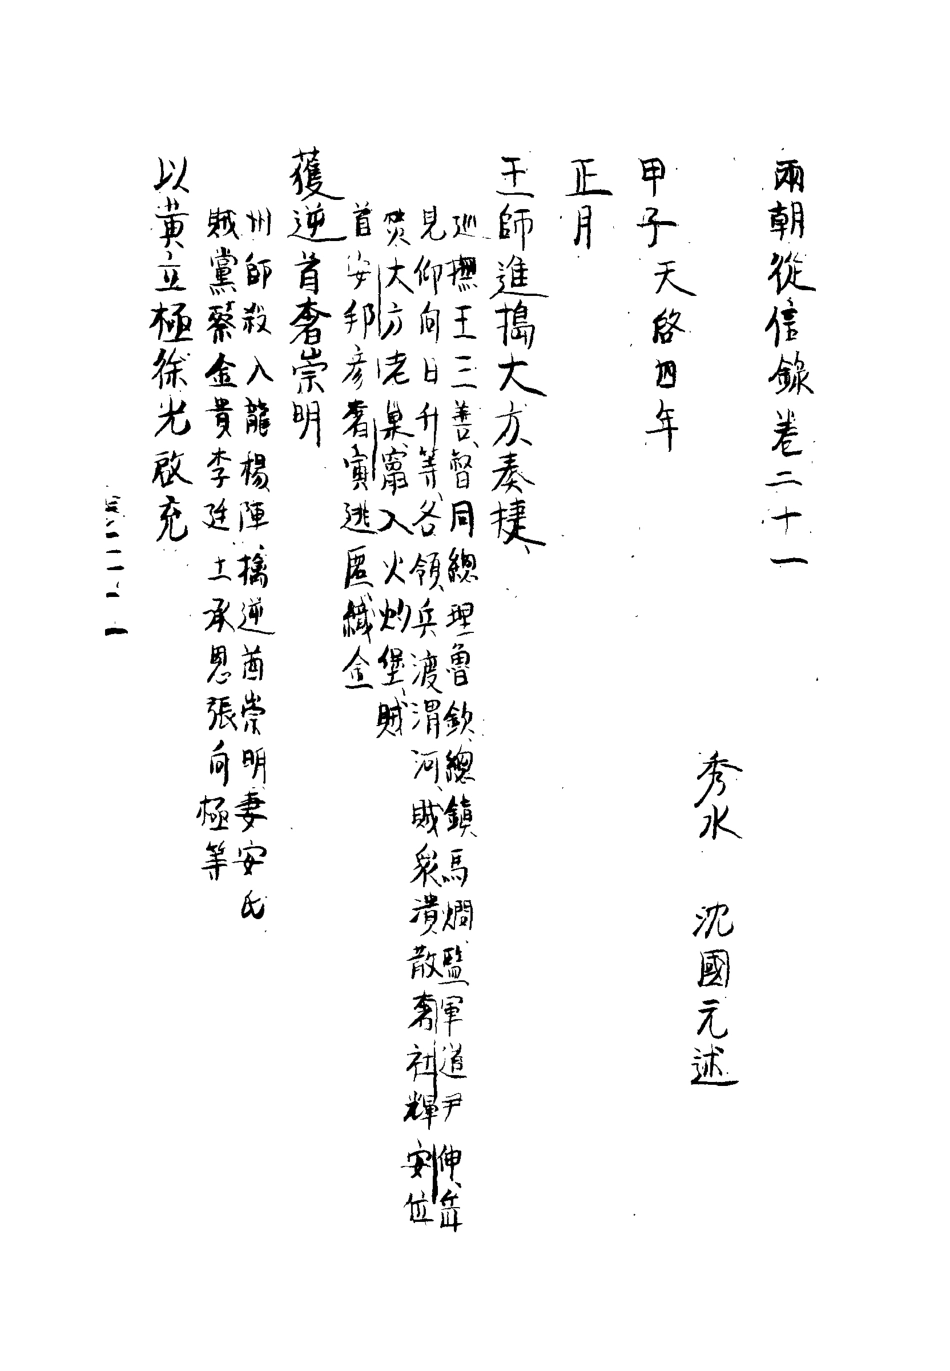 兩朝從信錄卷二十一
秀水 沈國元述
甲子天啓四年
正月
王師進搗大方奏捷
巡撫王三善督同總理魯欽總鎮馬烱監軍道尹伸岳
見仰向日升等各領兵渡渭河賊衆潰散奢社輝安位
焚大方老巢竄入火灼堡賊
首安邦彥奢寅逃匿織金
獲逆首奢崇明
州師殺入龍楊陣擒逆酋崇明妻安氏
賊黨蔡金貴李廷士承恩張向極等
以黃立極徐光啟充